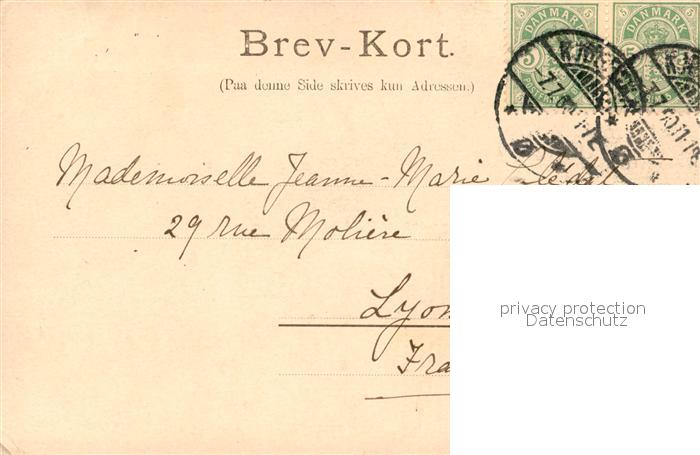 Brev-Kort.
(Paa denne Side skrives kun Adressen.)
DANMARK
DANMARK
5
5
5
5
KJØB
Mademoiselle Jeanne-Marie
29 rue Molière
Lyon
Fra
privacy protection
Datenschutz